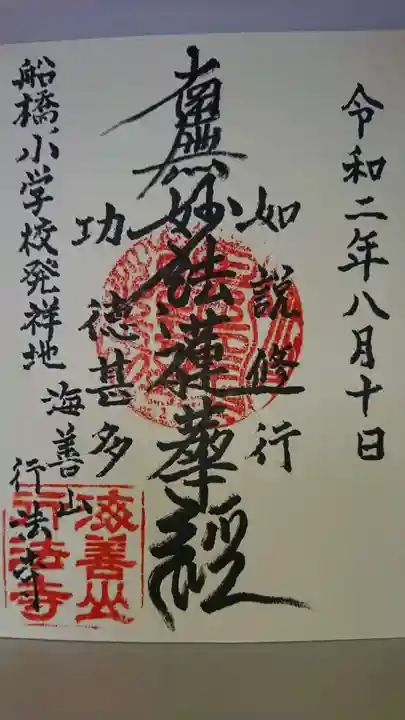 令和二年八月十日
如説修行
南無妙法蓮華経
功徳甚多
船橋小学校発祥地
海善山
行法寺
海善山
行法寺